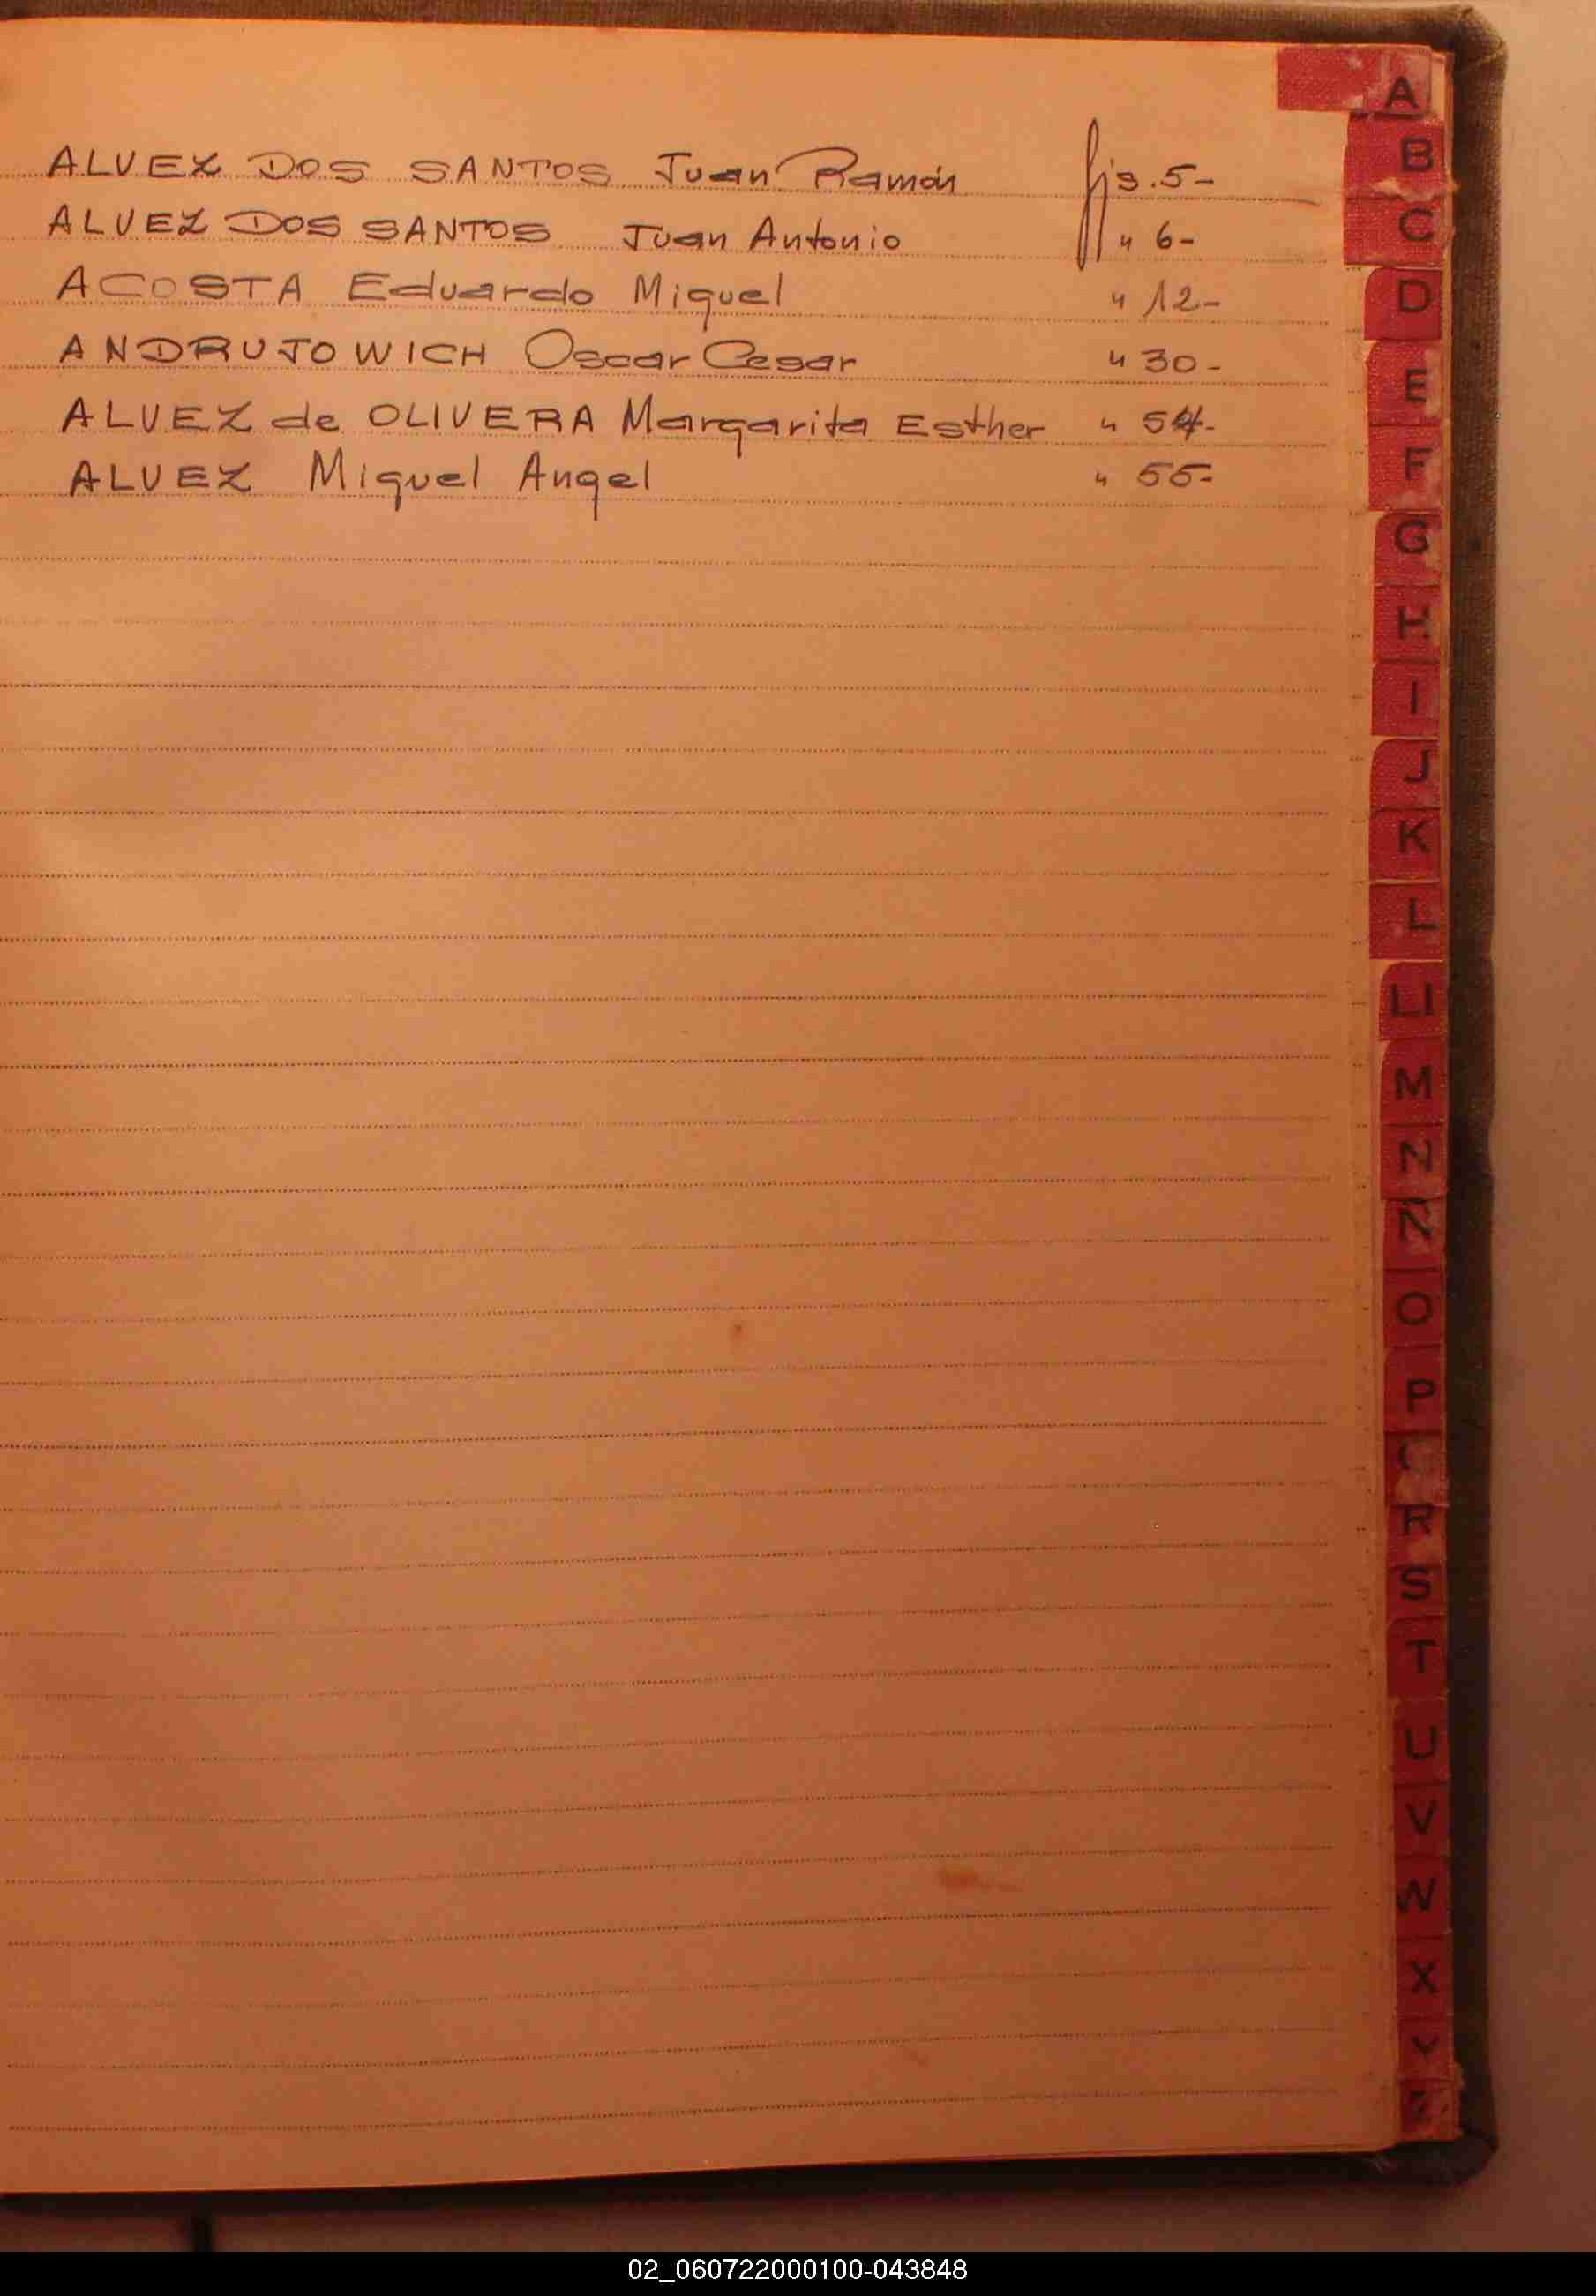 A
ALVEZ DOS SANTOS Juan Ramón fjs. 5-
ALVEZ DOS SANTOS Juan Antonio " 6-
ACOSTA Eduardo Miguel " 12-
ANDRUJOWICH Oscar Cesar " 30-
ALVEZ de OLIVERA Margarita Esther " 54-
ALVEZ Miguel Angel " 55-
B
C
D
E
F
G
H
I
J
K
L
Ll
M
N
Ñ
O
P
R
S
T
U
V
W
X
Y
02_060722000100-043848